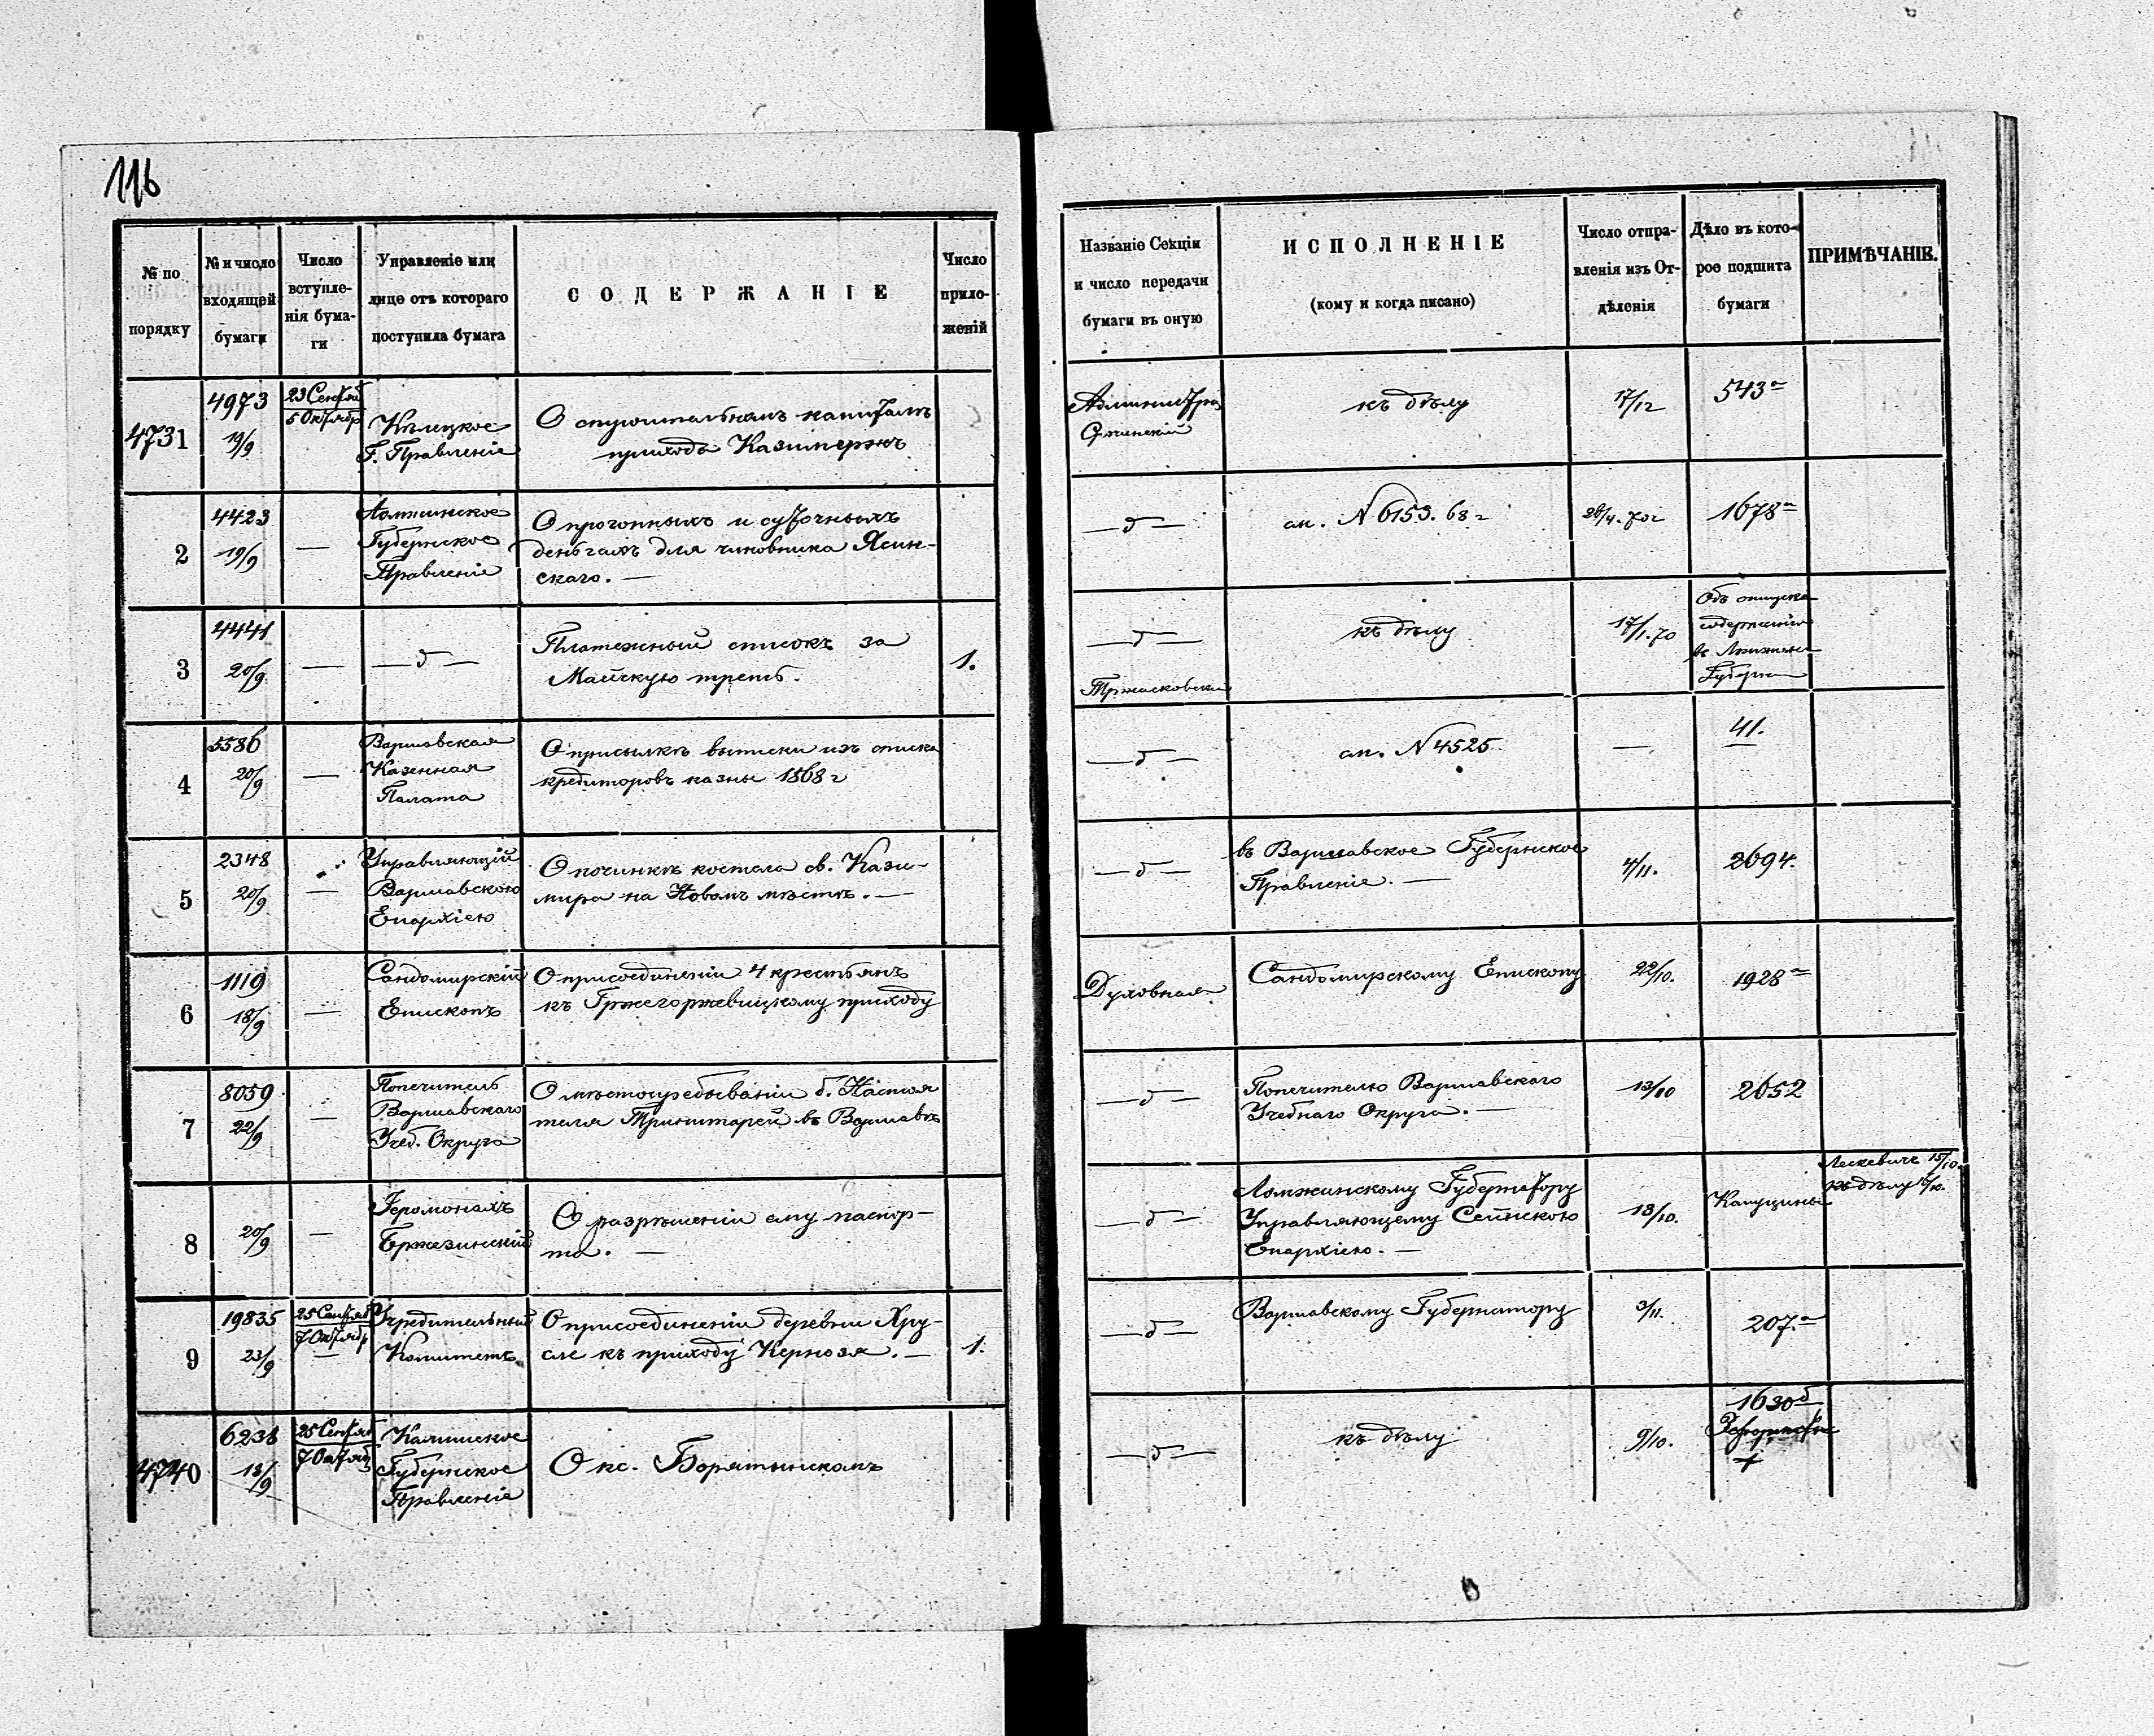 116
№ по порядку
№ и число входящей бумаги
Число вступле-
нія бума-
ги
Управленіе или
лице отъ котораго
поступила бумага
СОДЕРЖАНІЕ
Число
прило-
женій
Названіе Секціи
и число передачи
бумаги въ оную
ИСПОЛНЕНІЕ
(кому и когда писано)
Число отпра-
вленія изъ От-
дѣленія
Дѣло въ кото-
рое подшита
бумаги
ПРИМѢЧАНІЕ.
4731
4973
19/9
23 Сентяб
5 Октябр
Кѣлецкое
Г. Правленіе
О строительномъ капиталѣ
прихода Казимержъ
къ дѣлу
17/12
543а
2
4423
19/9
—
Ломжинское
Губернское
Правленіе
О прогонныхъ и суточныхъ
деньгахъ для чиновника Ясин-
скаго. —
— д —
сп. N 6153. 68 г
26/4. 70 г
1678а
3
4441
20/9
—
— д —
Платежный списокъ за
Майскую треть.
1.
— д —
къ дѣлу
17/1. 70
Объ отпускѣ
содержанія
въ
Губерн
4
5586
20/9
—
Варшавская
Казенная
Палата
О присылкѣ выписки изъ списка
кредиторовъ казны 1868 г
— д —
сп. N 4525
—
41.
5
2348
20/9
—
Управляющій
Варшавскою
Епархіею
О починкѣ костела св. Кази-
мира на Новомъ мѣстѣ. —
— д —
въ Варшавское Губернское
Правленіе. —
4/11.
2694.
6
1119
18/9
—
Сандомирскій
Епископъ
О присоединеніи 4 крестьянъ
къ Гржегоржевицкому приходу
Духовная
Сандомирскому Епископу
22/10.
1928а
7
8059
22/9
—
Попечитель
Варшавскаго
Учеб. Округа
О мѣстопребываніи б. Настоя
теля Тринитарей въ Варшавѣ
— д —
Попечителю Варшавскаго
Учебнаго Округа. —
13/10
2652
8
20/9
—
Іеромонахъ
Бржезинскій
О разрѣшеніи ему паспор-
та. —
— д —
Ломжинскому Губернатору
Управляющему Сейнскою
Епархіею. —
13/10.
Капуцины
Лескевичъ 15/10.
къ дѣлу
9
19835
23/9
25 Сентяб
7 Октябр
—
Учредительный
Комитетъ
О присоединеніи деревни Хру-
сле къ приходу Кернозя. —
1.
— д —
Варшавскому Губернатору
3/11.
207а
4740
6238
18/9
25 Сентяб
7 Октяб
Калишское
Губернское
Правленіе
О кс. Борятынскомъ
— д —
къ дѣлу
9/10.
1630д